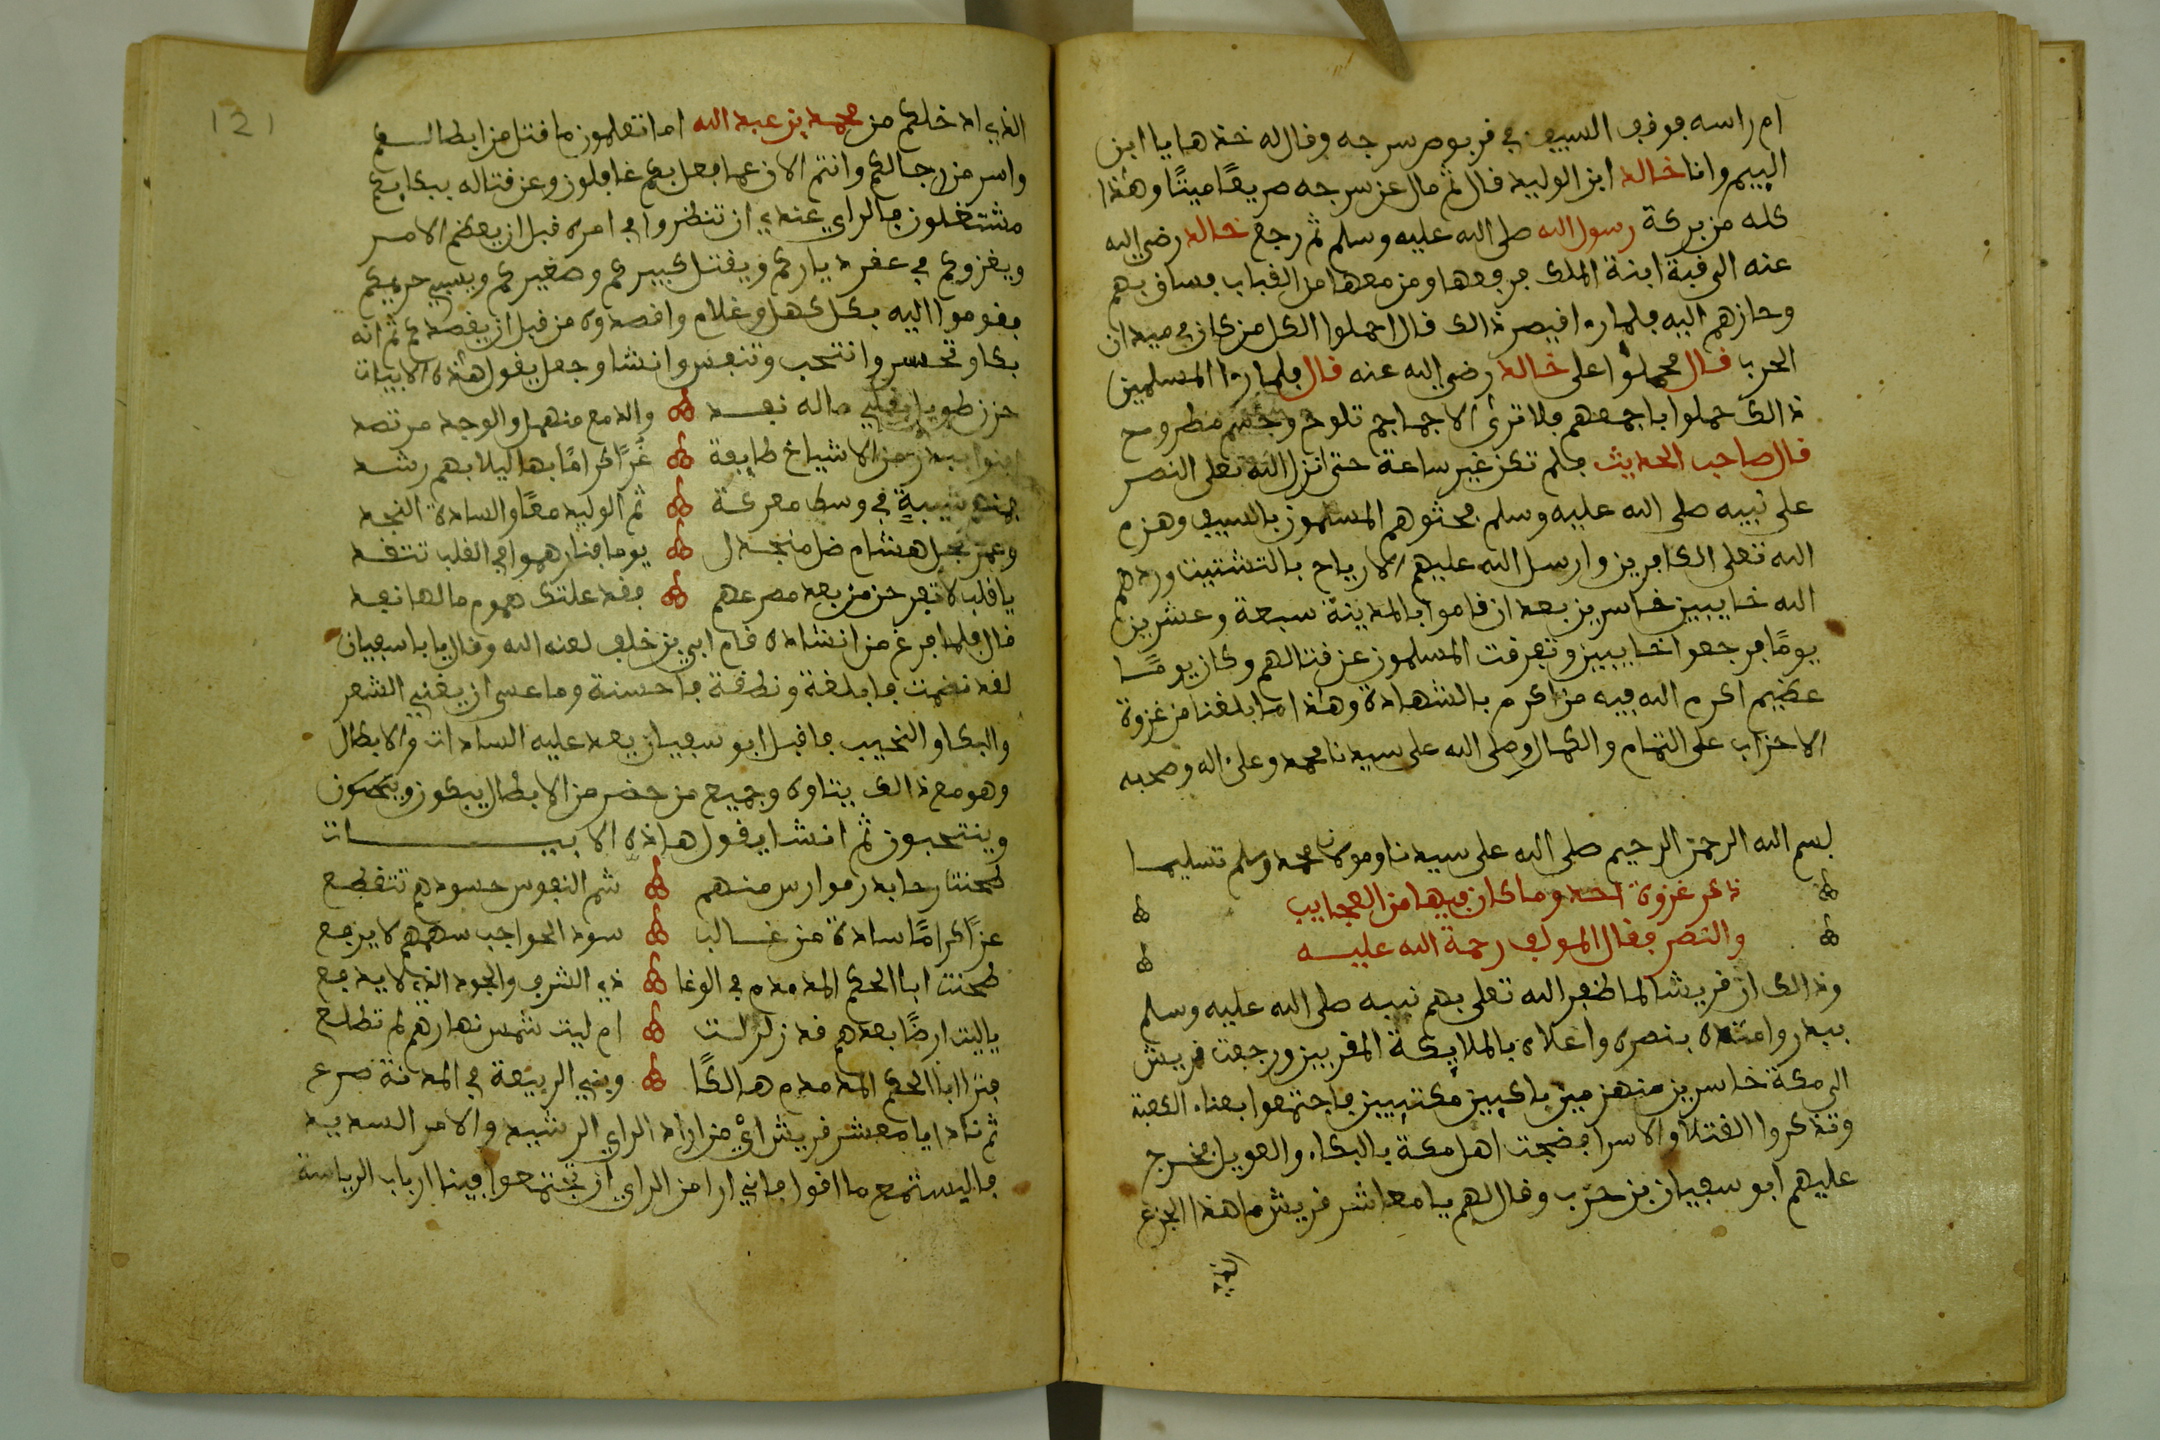 ام راسه فوقف السيف في قربوص سرجه وقال له خذها يا ابن
اليم وانا خالد ابن الوليد قال ثم مال عن سرجه صريعًا ميتًا وهذا
كله من بركة رسول الله صلى الله عليه وسلم ثم رجع خالد رضي الله
عنه الى قبة ابنة الملك فرفعها ومن معها من القباب فساق بهم
وحازهم اليه فلما را قيصر ذالك قال احملوا الكل من كان في ميدان
الحرب قال فحملوا على خالد رضي الله عنه قال فلما را المسلمين
ذالك حملوا باجمعهم فلا ترى الا جماجم تلوح مطروح
قال صاحب الحديث فلم تكن غير ساعة حتى انزل الله تعلى النصر
على نبيه صلى الله عليه وسلم فحثوهم المسلمون بالسيف وهزم
الله تعلى الكافرين وارسل الله عليهم الارياح بالتشتيت وردهم
الله خايبين خاسرين بعد ان قاموا بالمدينة سبعة وعشرين
يومًا فرجعوا خايبين وتفرقت المسلمون عن قتالهم وكان يومًا
عظيم اكرم الله فيه من اكرم بالشهادة وهذا ما بلغنا من غزوة
الاحزاب على التمام والكمال وصلى الله على سيدنا محمد وعلى اله وصحبه
بسم الله الرحمن الرحيم صلى الله على سيدنا ومولانا محمد وسلم تسليما
ذكر غزوة احد وما كان فيها من العجايب
والنصر فقال المولف رحمة الله عليه
وذالك ان قريشا لما ظفر الله تعلى بهم نبيه صلى الله عليه وسلم
ببدر وامده بنصره واعلاه بالملايكة المقربين ورجعت قريش
الى مكة خاسرين منهزمين باكيين مكتيبين فاجتمعوا بفناء الكعبة
وتذكروا القتلا والاسرا فضجت اهل مكة بالبكاء والعويل فخرج
عليهم ابو سفيان بن حرب وقال لهم يا معاشر قريش ما هذا الجزع
121
الذي ادخلكم من محمد بن عبد الله اما تعلمون ما قتل من ابطالكم
واسر من رجالكم وانتم الان عما فعل بكم غافلون وعن قتاله ببكايكم
مشتغلون فالراي عندي ان تنظروا في امره قبل ان يعظم الامر
ويغزوكم في عقر دياركم ويقتل كبيركم وصغيركم ويسبي حريمكم
فقوموا اليه بكل كهل وغلام واقصدوه من قبل ان يقصدكم ثم انه
بكا وتحسر وانتحب وتنفس وانشا وجعل يقول هذه الابيات
حزن طويل بقلبي ماله نفد والدمع منهمل والوجد مرتصد
ببدر من الاشياخ طايفة غرًا كرامًا بها ليلا بهم رشد
شيبة في وسط معركة ثم الوليد معًا والسادة النجد
وعمر نجل هشام ضل منجدل يوما فنارهموا في القلب تتقد
يا قلب لا تفرحن من بعد مصرعهم فقد علتك هموم مالها نفد
قال فلما فرغ من انشاده قام ابي بن خلف لعنه الله وقال يا با سفيان
لقد نضمت فابلغة ونطقة فاحسنة وما عسى ان يغني الشعر
والبكا والنحيب فاقبل ابو سفيان يعد عليه السادات والابطال
وهو مع ذالك يتاوه وجميع من حضر من الابطال يبكون
وينتحبون ثم انشا يقول هاذه الابيات
طحنت رحا بدر فوارس منهم شم النفوس حسودهم تتقطع
عزًا كرامًا سادة من غالب سود الحواجب سهمهم لا يرجع
طحنت ابا الحكم المدمدم في الوغا ذي الشرف والجود الذي لا يدفع
يا ليت ارضًا بعدهم قد زلزلت ام ليت شمس نهارهم لم تطلع
فترا ابا الحكم المدمدم هالكًا وبني الربيعة في المدنة صرع
ثم نادا يا معشر قريش اي من اراد الراي الرشيد والامر السديد
فاليستمع ما اقول فاني ارا من الراي ان تجتمعوا فينا ارباب الرياسة